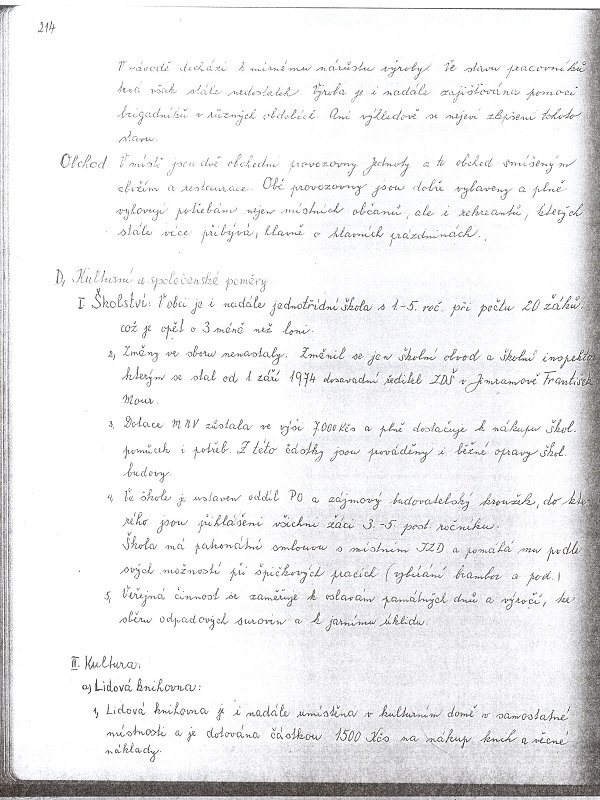 214
V závodě dochází k mírnému nárůstu výroby. Ve stavu pracovníků
trvá však stále nedostatek. Výroba je i nadále zajišťována pomocí
brigádníků v různých obdobích. Ani výhledově se nejeví zlepšení tohoto
stavu.
Obchod V místě jsou dvě obchodní provozovny Jednoty a to obchod smíšeným
zbožím a restaurace. Obě provozovny jsou dobře vybaveny a plně
vyhovují potřebám nejen místních občanů, ale i rekreantů, kterých
stále více přibývá, hlavně o hlavních prázdninách.
D, Kulturní a společenské poměry
I. Školství: V obci je i nadále jednotřídní škola s 1.-5. roč. při počtu 20 žáků
což je opět o 3 méně než loni.
2, Změny ve sboru nenastaly. Změnil se jen školní obvod a školní inspektor
kterým se stal od 1. září 1974 dosavadní ředitel ZDŠ v Jimramově František
Mour.
3, Dotace MNV zůstala ve výši 7.000 Kčs a plně dostačuje k nákupu škol.
pomůcek i potřeb. Z této částky jsou prováděny i běžné opravy škol.
budovy.
4, Ve škole je ustaven oddíl PO a zájmový budovatelský kroužek, do kte-
rého jsou přihlášeni všichni žáci 3.-5. post. ročníku.
Škola má patronátní smlouvu s místním JZD a pomáhá mu podle
svých možností při špičkových pracích (vybírání brambor a pod.)
5, Veřejná činnost se zaměřuje k oslavám památných dnů a výročí, ke
sběru odpadových surovin a k jarnímu úklidu.
II. Kultura:
a) Lidová knihovna:
1, Lidová knihovna je i nadále umístěna v kulturním domě v samostatné
místnosti a je dotována částkou 1500 Kčs na nákup knih a věcné
náklady.